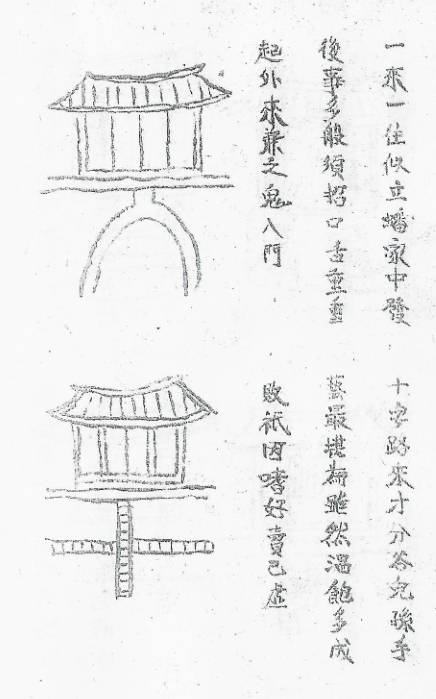 一來一往似立幡家中發
後事多般須招口舌重重
起外來兼之鬼入門
十字路來才分谷兒孫手
藝最堪為雖然溫飽多成
敗祇因嗜好賣己虛